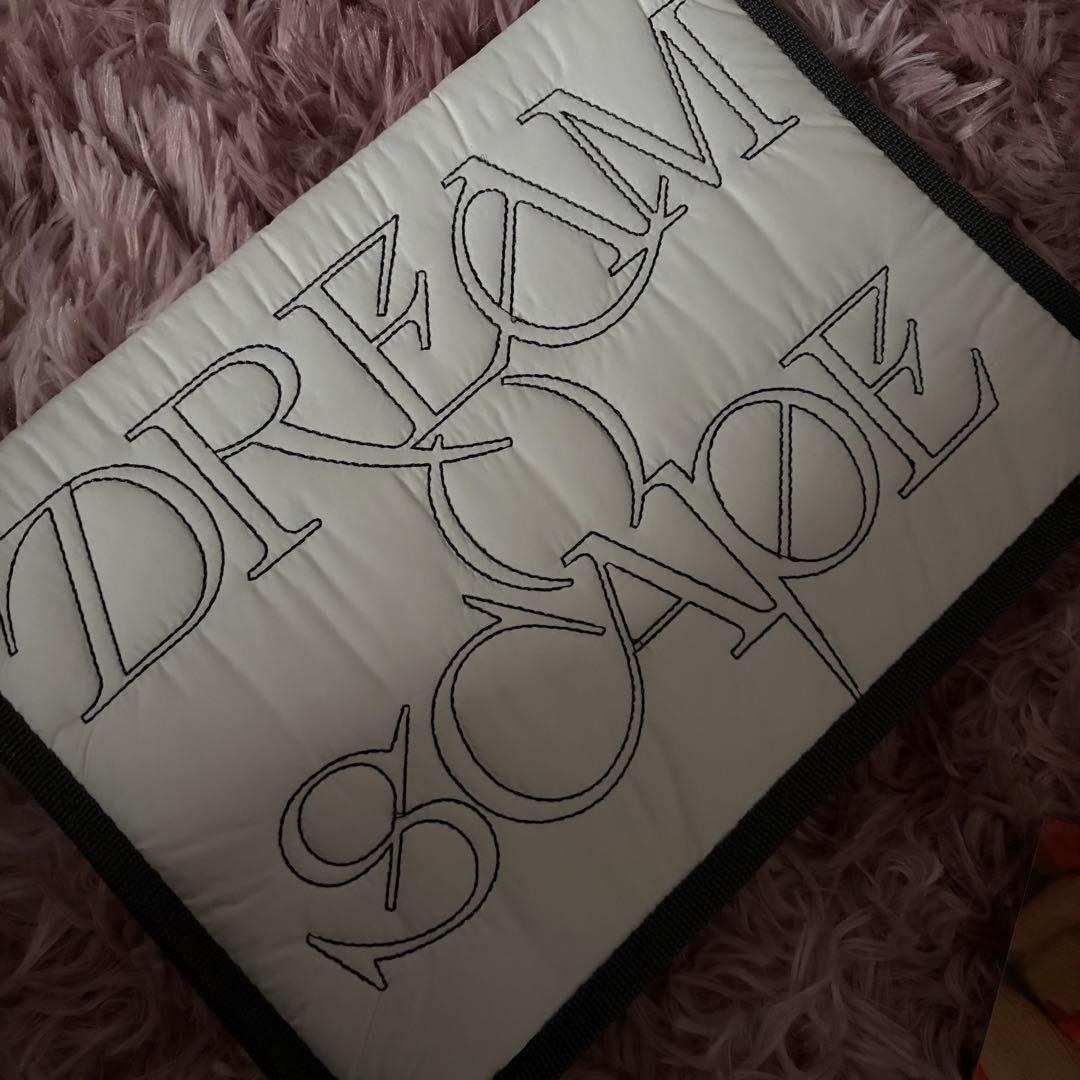 DREAM
SCAPE